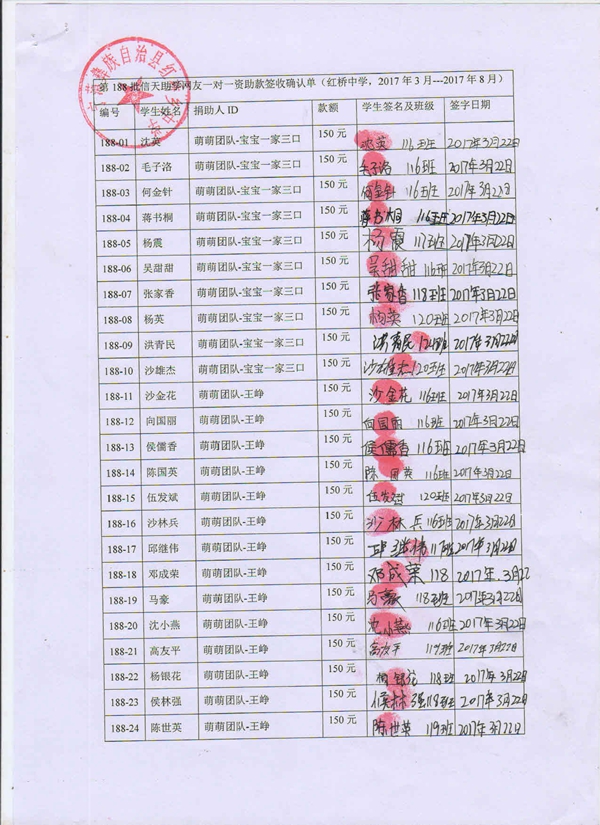 彝族自治县红
第188批信天助学网友一对一资助款签收确认单（红桥中学，2017年3月---2017年8月）
编号 学生姓名 捐助人ID 款额 学生签名及班级 签字日期
188-01 沈英 萌萌团队-宝宝一家三口 150元 沈英 116班 2017年3月22日
188-02 毛子洛 萌萌团队-宝宝一家三口 150元 毛子洛 116班 2017年3月22日
188-03 何金针 萌萌团队-宝宝一家三口 150元 何金针 116班 2017年3月22日
188-04 蒋书桐 萌萌团队-宝宝一家三口 150元 蒋书桐 116班 2017年3月22日
188-05 杨震 萌萌团队-宝宝一家三口 150元 杨震 117班 2017年3月22日
188-06 吴甜甜 萌萌团队-宝宝一家三口 150元 吴甜甜 116班 2017年3月22日
188-07 张家香 萌萌团队-宝宝一家三口 150元 张家香 118班 2017年3月22日
188-08 杨英 萌萌团队-宝宝一家三口 150元 杨英 120班 2017年3月22日
188-09 洪青民 萌萌团队-宝宝一家三口 150元 洪青民 2017年3月22日
188-10 沙雄杰 萌萌团队-宝宝一家三口 150元 沙雄杰 120班 2017年3月22日
188-11 沙金花 萌萌团队-王峥 150元 沙金花 116班 2017年3月22日
188-12 向国丽 萌萌团队-王峥 150元 向国丽 116班 2017年3月22日
188-13 侯儒香 萌萌团队-王峥 150元 侯儒香 116班 2017年3月22日
188-14 陈国英 萌萌团队-王峥 150元 陈国英 116班 2017年3月22日
188-15 伍发斌 萌萌团队-王峥 150元 伍发斌 120班 2017年3月22日
188-16 沙林兵 萌萌团队-王峥 150元 沙林兵 116班 2017年3月22日
188-17 邱继伟 萌萌团队-王峥 150元 邱继伟 117班 2017年3月22日
188-18 邓成荣 萌萌团队-王峥 150元 邓成荣 118 2017年.3月22
188-19 马豪 萌萌团队-王峥 150元 马豪 118班 2017年3月22日
188-20 沈小燕 萌萌团队-王峥 150元 沈小燕 116班 2017年3月22日
188-21 高友平 萌萌团队-王峥 150元 高友平 119班 2017年3月22日
188-22 杨银花 萌萌团队-王峥 150元 杨银花 118班 2017年3月22日
188-23 侯林强 萌萌团队-王峥 150元 侯林强 118班 2017年3月22日
188-24 陈世英 萌萌团队-王峥 150元 陈世英 119班 2017年3月22日